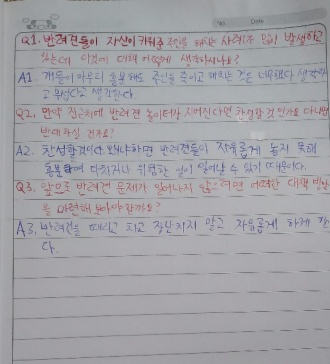 No. Date
Q1. 반려견들이 자신이 키워준 주인을 해치는 사례가 많이 발생하고
있는데 이것에 대해 어떻게 생각하시나요?
A1. 개들이 아무리 흥분해도 주인을 죽이고 해치는 것은 너무했다 생각하
고 무섭다고 생각한다.
Q2. 만약 집근처에 반려견 놀이터가 지어진다면 찬성할 것인가요 아니면
반대하실 건가요?
A2. 찬성할것이다 왜냐하면 반려견들이 자유롭게 놀지 못해
흥분하여 다치거나 위험한 일이 일어날 수 있기 때문이다.
Q3. 앞으로 반려견 문제가 일어나지 않으려면 어떠한 대책 방안
을 마련해 보아야 할까요?
A3. 반려견을 때리고 치고 장난치지 말고 자유롭게 하게 한
다.